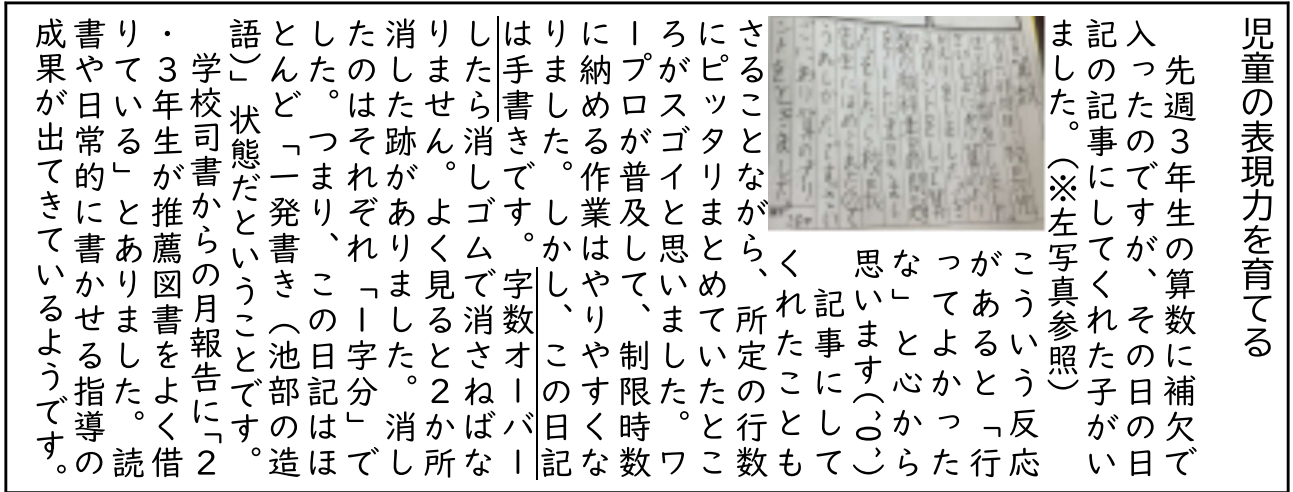 児童の表現力を育てる
　先週３年生の算数に補欠で
入ったのですが、その日の日
記の記事にしてくれた子がい
ました。（※左写真参照）
こういう反応
があると「行
ってよかった
な」と心から
思います(^O^)
　記事にして
くれたことも
さることながら、所定の行数
にピッタリまとめていたとこ
ろがスゴイと思いました。ワ
ープロが普及して、制限時数
に納める作業はやりやすくな
りました。しかし、この日記
は手書きです。字数オーバー
したら消しゴムで消さねばな
りません。よく見ると２か所
消した跡がありました。消し
たのはそれぞれ「１字分」で
した。つまり、この日記はほ
とんど「一発書き（池部の造
語）」状態だということです。
　学校司書からの月報告に「２
・３年生が推薦図書をよく借
りている」とありました。読
書や日常的に書かせる指導の
成果が出てきているようです。